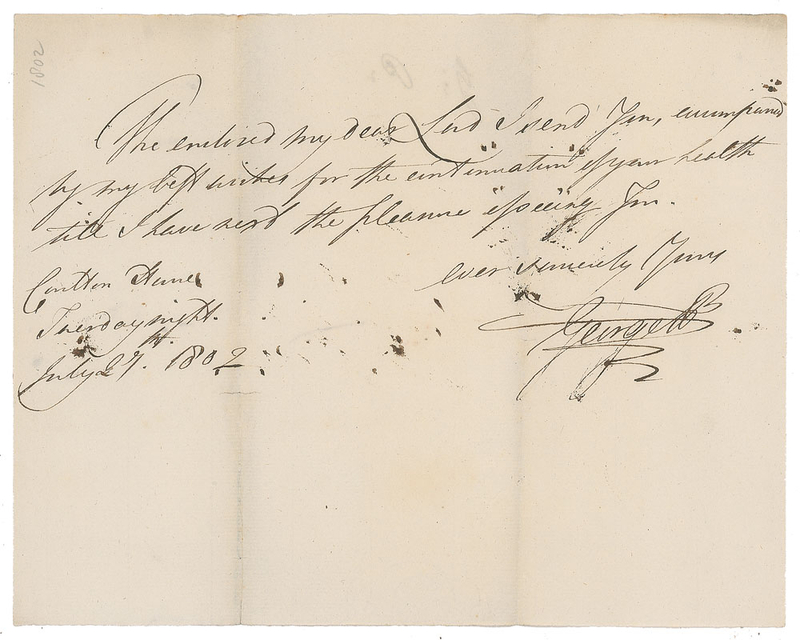 1802
The enclosed my dear Lord I send You, accompanied
by my best wishes for the continuation of your health
till I have next the pleasure of seeing You.
ever sincerely Yours
George P.
Carlton House
Tuesday night.
July 27th. 1802